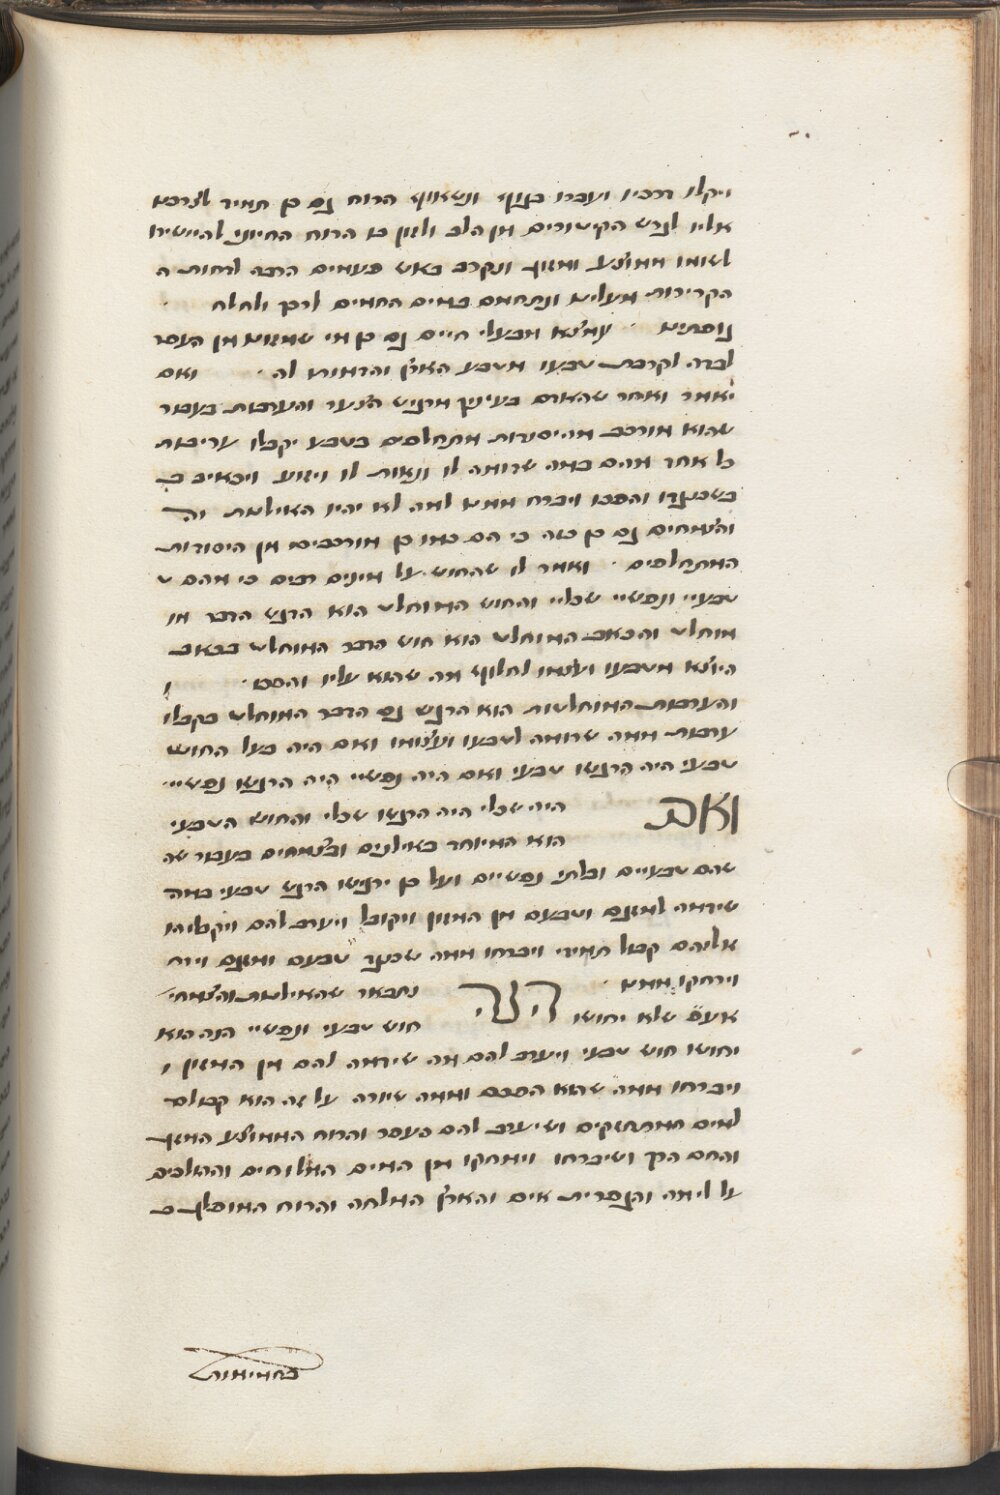 ויקלו דרכיו ועברו בגוף ונשאוף הרוח גם כן תמיד לצרכנו
אליו לגרש הקיטורים מן הלב ולזון בו הרוח החיוני להיישירו
לשומו ממוצע ומזוג ונקרב באש פעמים הרבה לדחות ה
הקרירות מעלינו ונתחמם במים החמים לרכך ולחלח
גופתינו נמצא מבעלי חיים גם כן מי שמזונו מן העפר
לבדה לקרבת טבעו מטבע הארץ והדמותו לה ואם
יאמר ואחר שהאדם בעינין מרגיש הצער והערבות בעבור
שהוא מורכב מהיסודות מתחלפים בטבע יקבלו עריבות
כל אחד מהם במה שדומה לו ונאות לו ויזוע ויכאיב ב
בשכנגדו והפכו ויברח ממנו למה לא יהיו האילנות וה
והצמחים גם כן כזה כי הם כמו כן מורכבים מן היסודות
המתחלפים ואמר לו שהחוש על מינים רבים כי מהם ט
טבעיי ונפשיי שכליי והחוש המוחלט הוא הרגש הדבר מו
מוחלט והכאב המוחלט הוא חוש הדבר המוחלט בכאב
היוצא מטבעו ועצמו לחלוף מה שהוא עליו והפכו ו
והערבות המוחלטות הוא הרגש גם הדבר המוחלט בקבלו
ערבות ממה שדומה לטבעו ועצומו ואם היה בעל החוש
טבעי היה הרגשו טבעי ואם היה נפשיי היה הרגשו נפשיי
ואם היה שכלי היה הרגשו שכלי והחוש הטבעי
הוא המיוחד באילנים ובצמחים בעבור שה
שהם טבעיים ובלתי נפשיים ועל כן ירגישו הרגש טבעי במה
שידמה למזגם וטבעם מן המזון ויקובל ויערב להם ויקבלוהו
אליהם קבול תמידי ויברחו ממה שכנגד טבעם ומזגם וירח
וירחקו ממנו הנה נתבאר שהאילנות והצמחי
אעפ שלא יחושו חוש טבעי ונפשיי הנה הוא
יחושו חוש טבעי ויערב להם מה שידמה להם מן המזון ו
ויברחו ממה שהוא הפכם וממה שיורה על זה הוא קבולם
למים המתוקים ושיערב להם העפר והרוח הממוצע המזוג
והחם הרך ושיברחו וירחקו מן המים המלוחים וההולכים
על ליחה והגפרית אים והארץ המלחה והרוח המופלג ב
בחמימות